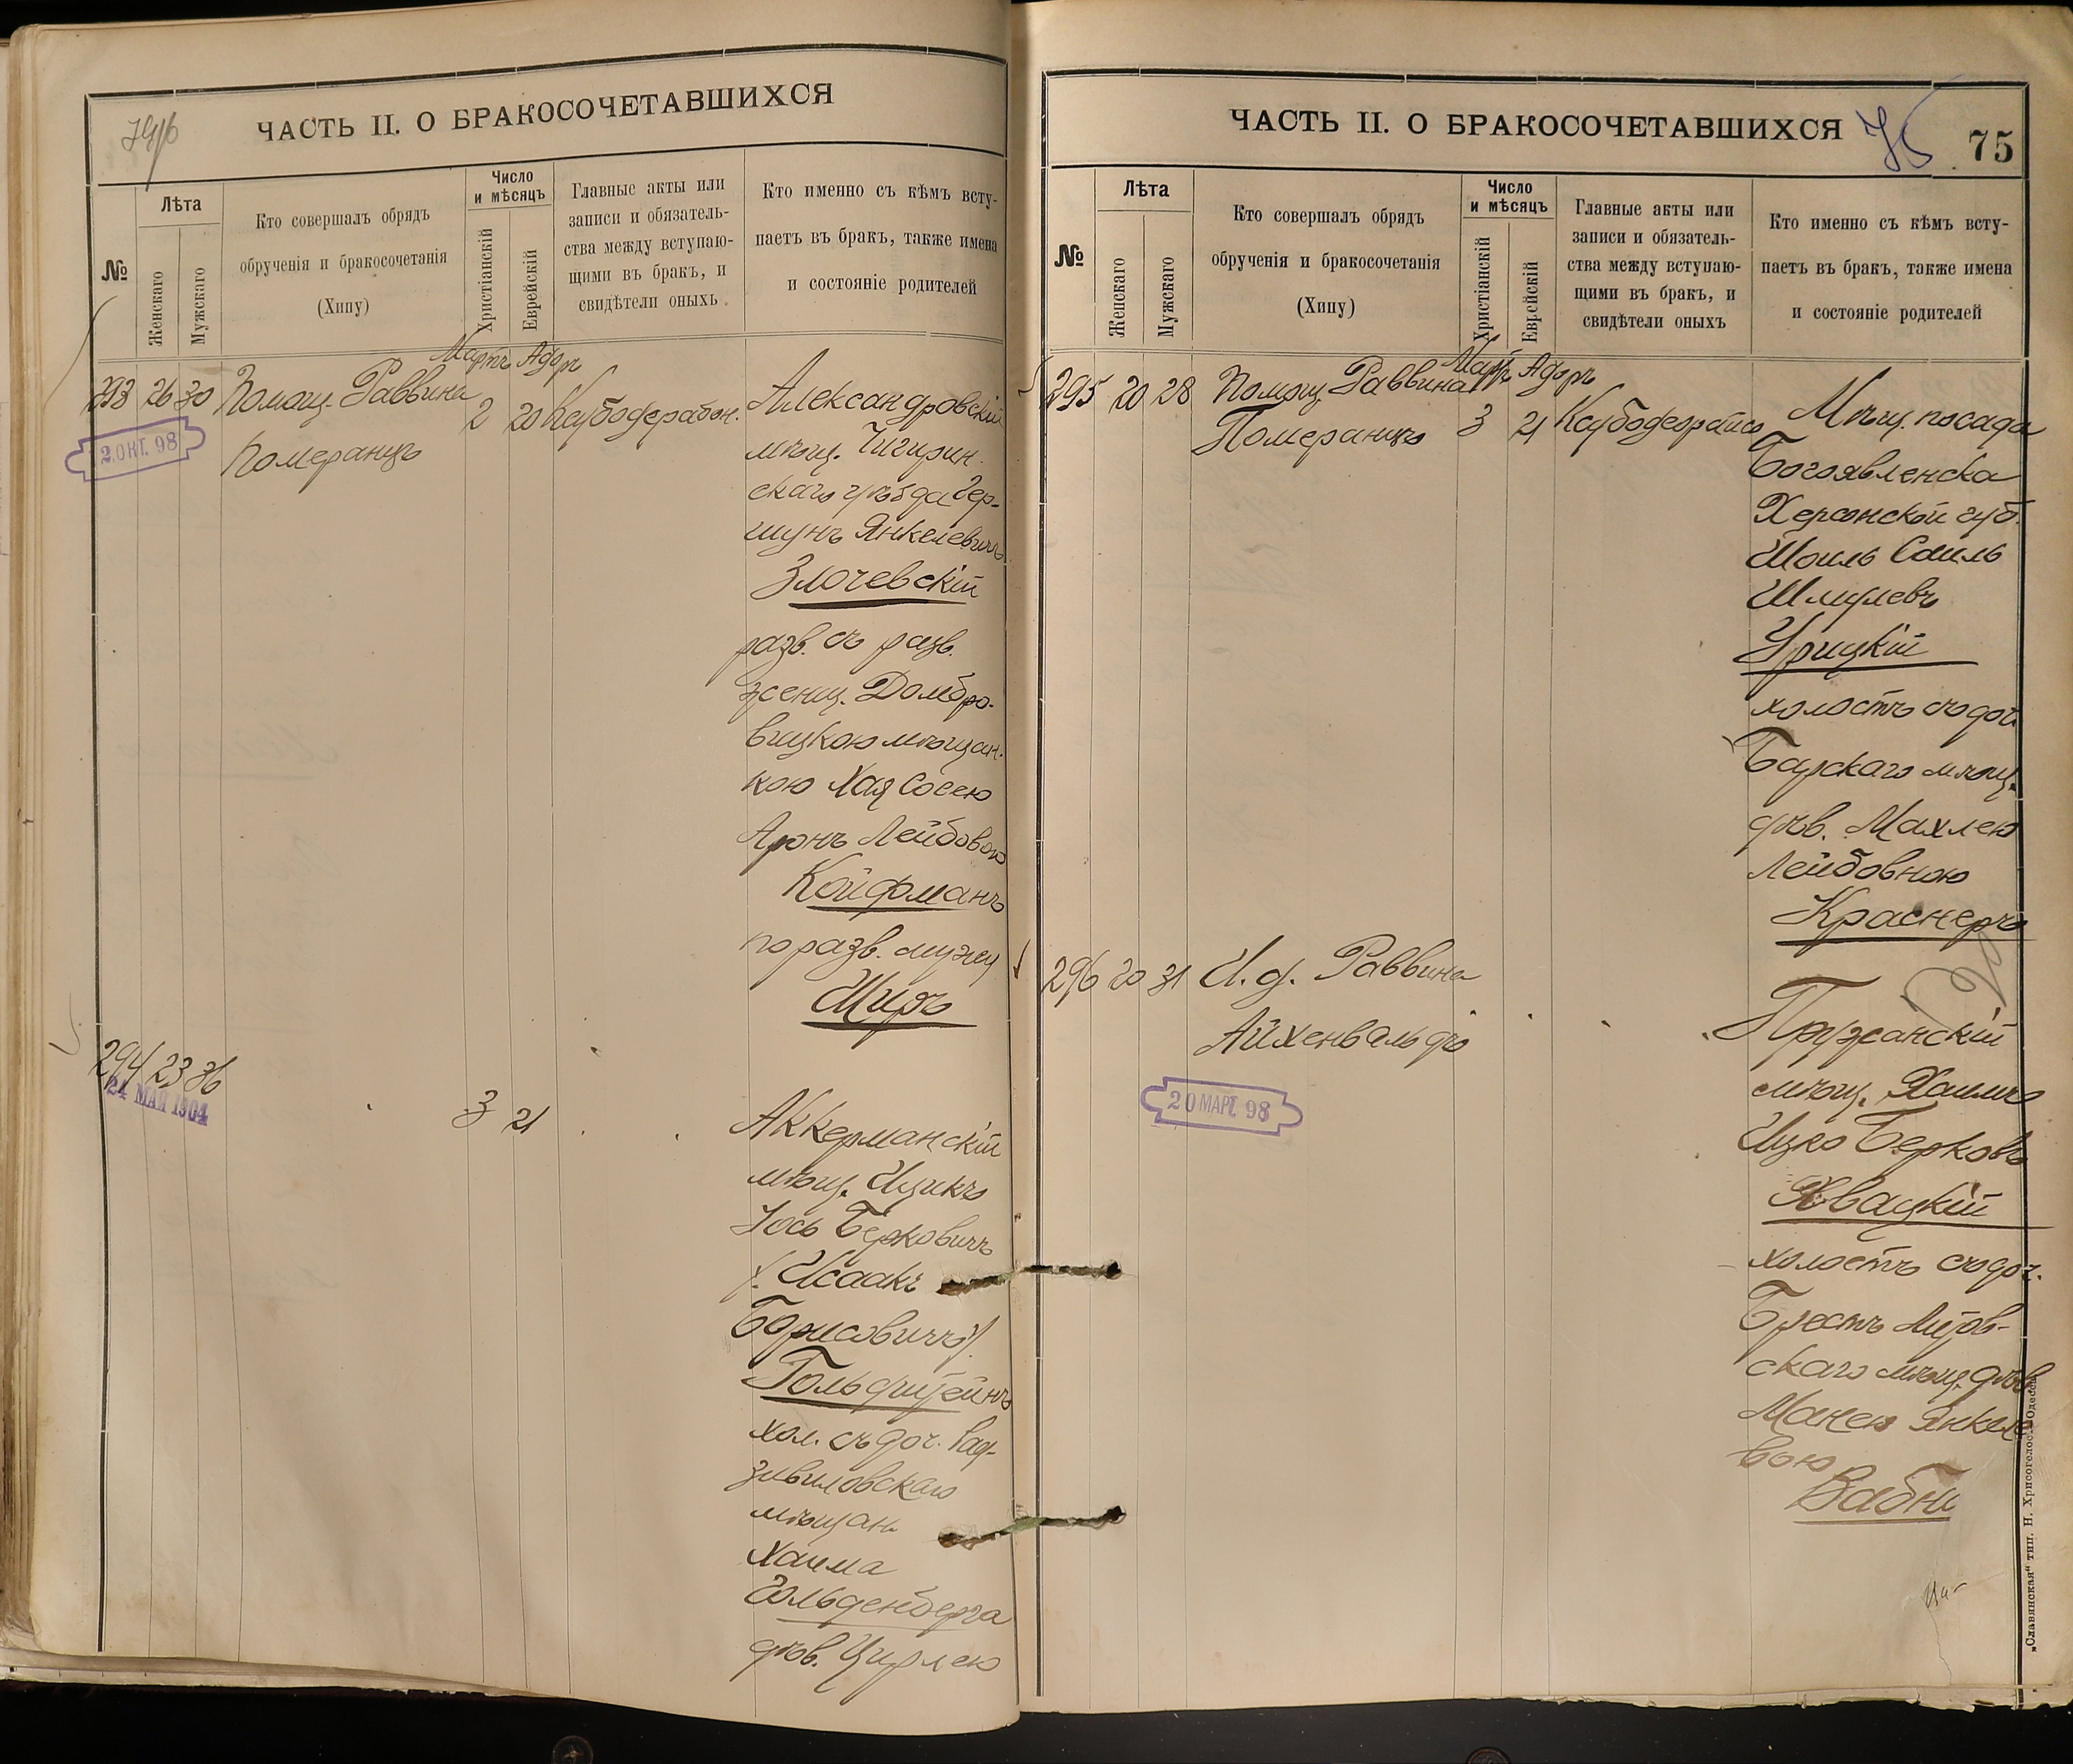 ЧАСТЬ II. О БРАКОСОЧЕТАВШИХСЯ
№
Лѣта
Женскаго
Мужскаго
Кто совершалъ обрядъ
обрученія и бракосочетанія
(Хипу)
Число
и мѣсяцъ
Христіанскій
Еврейскій
Главные акты или
записи и обязатель-
ства между вступаю-
щими въ бракъ, и
свидѣтели оныхъ
Кто именно съ кѣмъ всту-
паетъ въ бракъ, также имена
и состояніе родителей
Мартъ Адоръ
293 26 30 Помощ. Раввина
Померанцъ
2 20
2. ОКТ. 98
Александровскій
мѣщ. Чигирин-
скаго уѣзда Гер-
шунъ Янкелевичъ
Злочевскій
разв. съ разв.
женщ. Домбро-
вицкою мѣщан-
кою Хая Сосею
Аронъ Лейбовою
Койфманъ
по разв. мужу
294 23 26
24 МАЯ 1904
3 21
Аккерманскій
мѣщ. Ицикъ
Іось Берковичъ
(Исаакъ
Борисовичъ)
Гольдштейнъ
хол. съ доч. Рад-
зивиловскаго
мѣщан.
Хаима
Гольденберга
дѣв. Цирлею
ЧАСТЬ II. О БРАКОСОЧЕТАВШИХСЯ
75
75
№
Лѣта
Женскаго
Мужскаго
Кто совершалъ обрядъ
обрученія и бракосочетанія
(Хипу)
Число
и мѣсяцъ
Христіанскій
Еврейскій
Главные акты или
записи и обязатель-
ства между вступаю-
щими въ бракъ, и
свидѣтели оныхъ
Кто именно съ кѣмъ всту-
паетъ въ бракъ, также имена
и состояніе родителей
Мартъ Адоръ
295 20 28 Помощ. Раввина
Померанцъ
3 21
Мѣщ. посада
Богоявленска
Херсонской губ.
Шмулевъ
Урицкій
холостъ съ доч.
Барскаго мѣщ.
дѣв. Махлею
Лейбовною
Краснеръ
296 20 31 И. д. Раввина
Айхенвальдъ
20 МАРТ. 98
Пружанскій
мѣщ. Хаимъ
Ицко Берковъ
Хвацкій
холостъ съ доч.
Брестъ Литов-
скаго мѣщ. дѣв.
Манею Янкеле
вою
„Славянская“ тип. Н. Хрисогелосъ Одесса